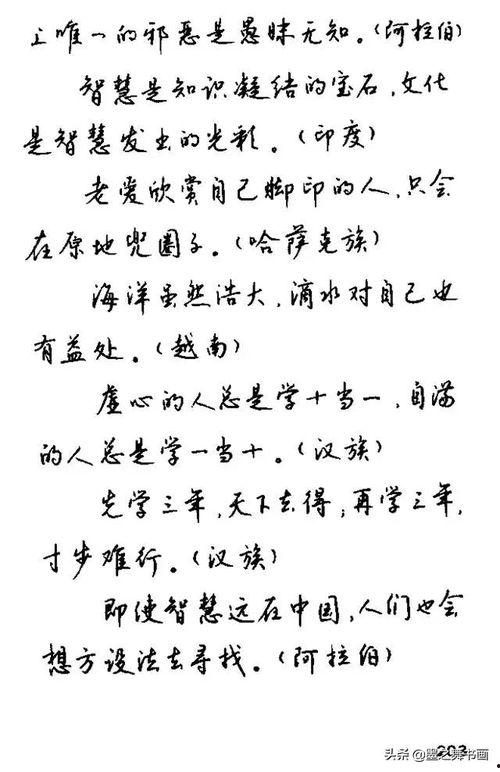 上唯一的邪恶是愚昧无知。(阿拉伯)
智慧是知识凝结的宝石,文化
是智慧发出的光彩。(印度)
老爱欣赏自己脚印的人,只会
在原地兜圈子。(哈萨克族)
海洋虽然浩大,滴水对自己也
有益处。(越南)
虚心的人总是学十当一,自满
的人总是学一当十。(汉族)
先学三年,天下去得;再学三年,
寸步难行。(汉族)
即使智慧远在中国,人们也会
想方设法去寻找。(阿拉伯)
203
头条@墨之舞书画